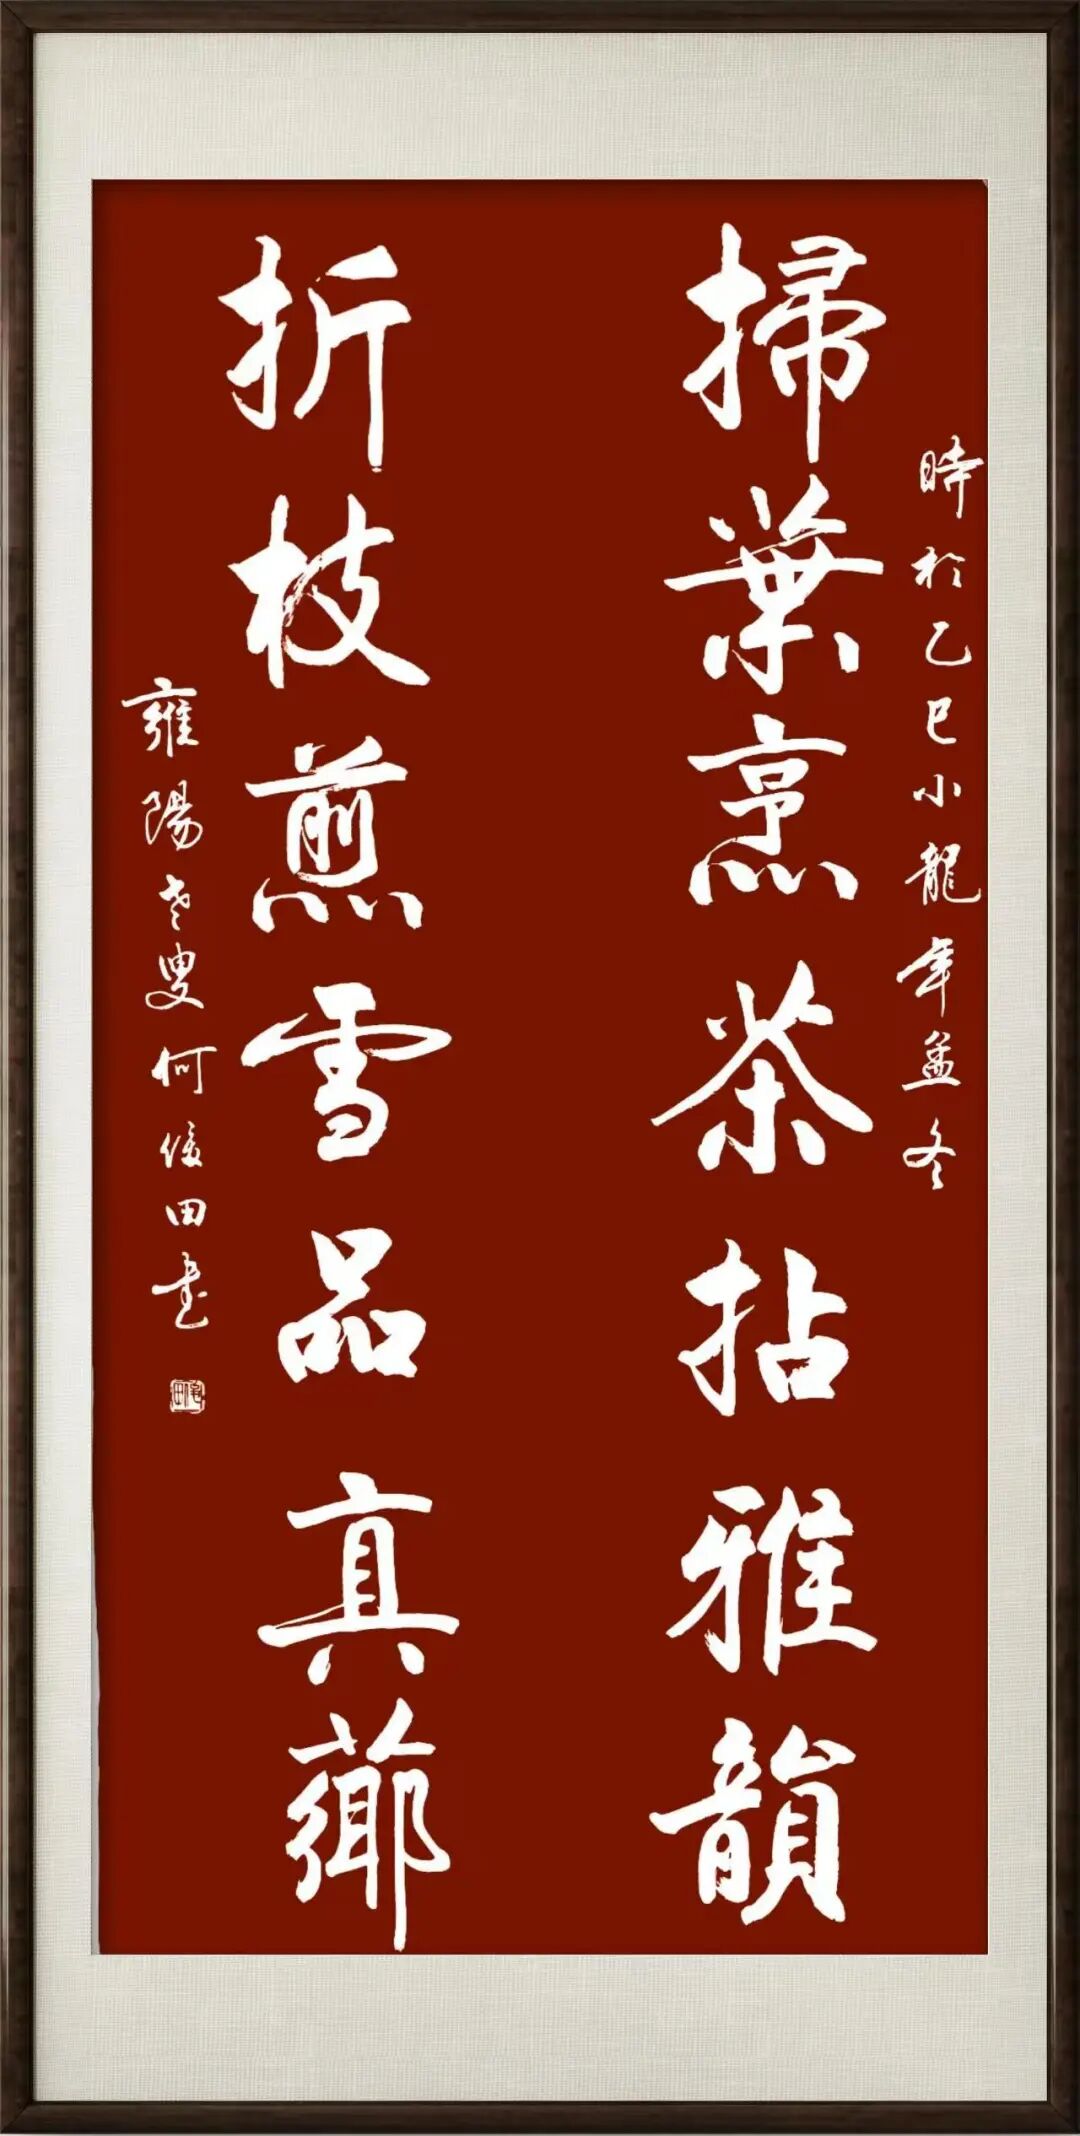 時於乙巳小龍年孟冬
掃葉烹茶拈雅韻
折枝煎雪品真薌
雍陽老叟何俊田書